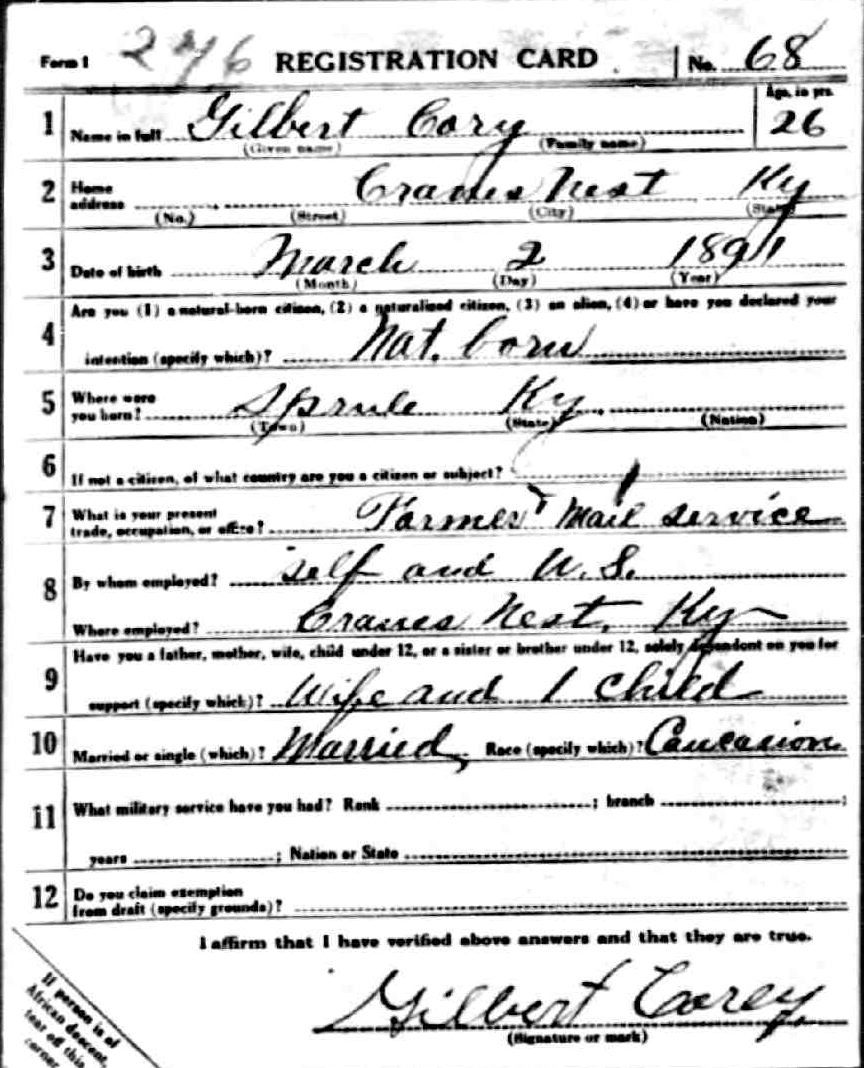 Form 1 276 REGISTRATION CARD No. 68
Age, in yrs.
1 Name in full Gilbert Cory 26
(Given name) (Family name)
2 Home address Cranes Nest Ky
(No.) (Street) (City) (State)
3 Date of birth March 2 1891
(Month) (Day) (Year)
Are you (1) a natural-born citizen, (2) a naturalized citizen, (3) an alien, (4) or have you declared your
4 intention (specify which)? Nat. born
5 Where were you born? Sprule Ky
(Town) (State) (Nation)
6 If not a citizen, of what country are you a citizen or subject?
7 What is your present trade, occupation, or office? Farmer Mail service
8 By whom employed? self and U.S.
Where employed? Cranes Nest, Ky
Have you a father, mother, wife, child under 12, or a sister or brother under 12, solely dependent on you for
9 support (specify which)? Wife and 1 child
10 Married or single (which)? Married Race (specify which)? Caucasion
11 What military service have you had? Rank ; branch ;
years ; Nation or State
12 Do you claim exemption
from draft (specify grounds)?
I affirm that I have verified above answers and that they are true.
Gilbert Corey
(Signature or mark)
If person is of
African descent,
tear off this
corner